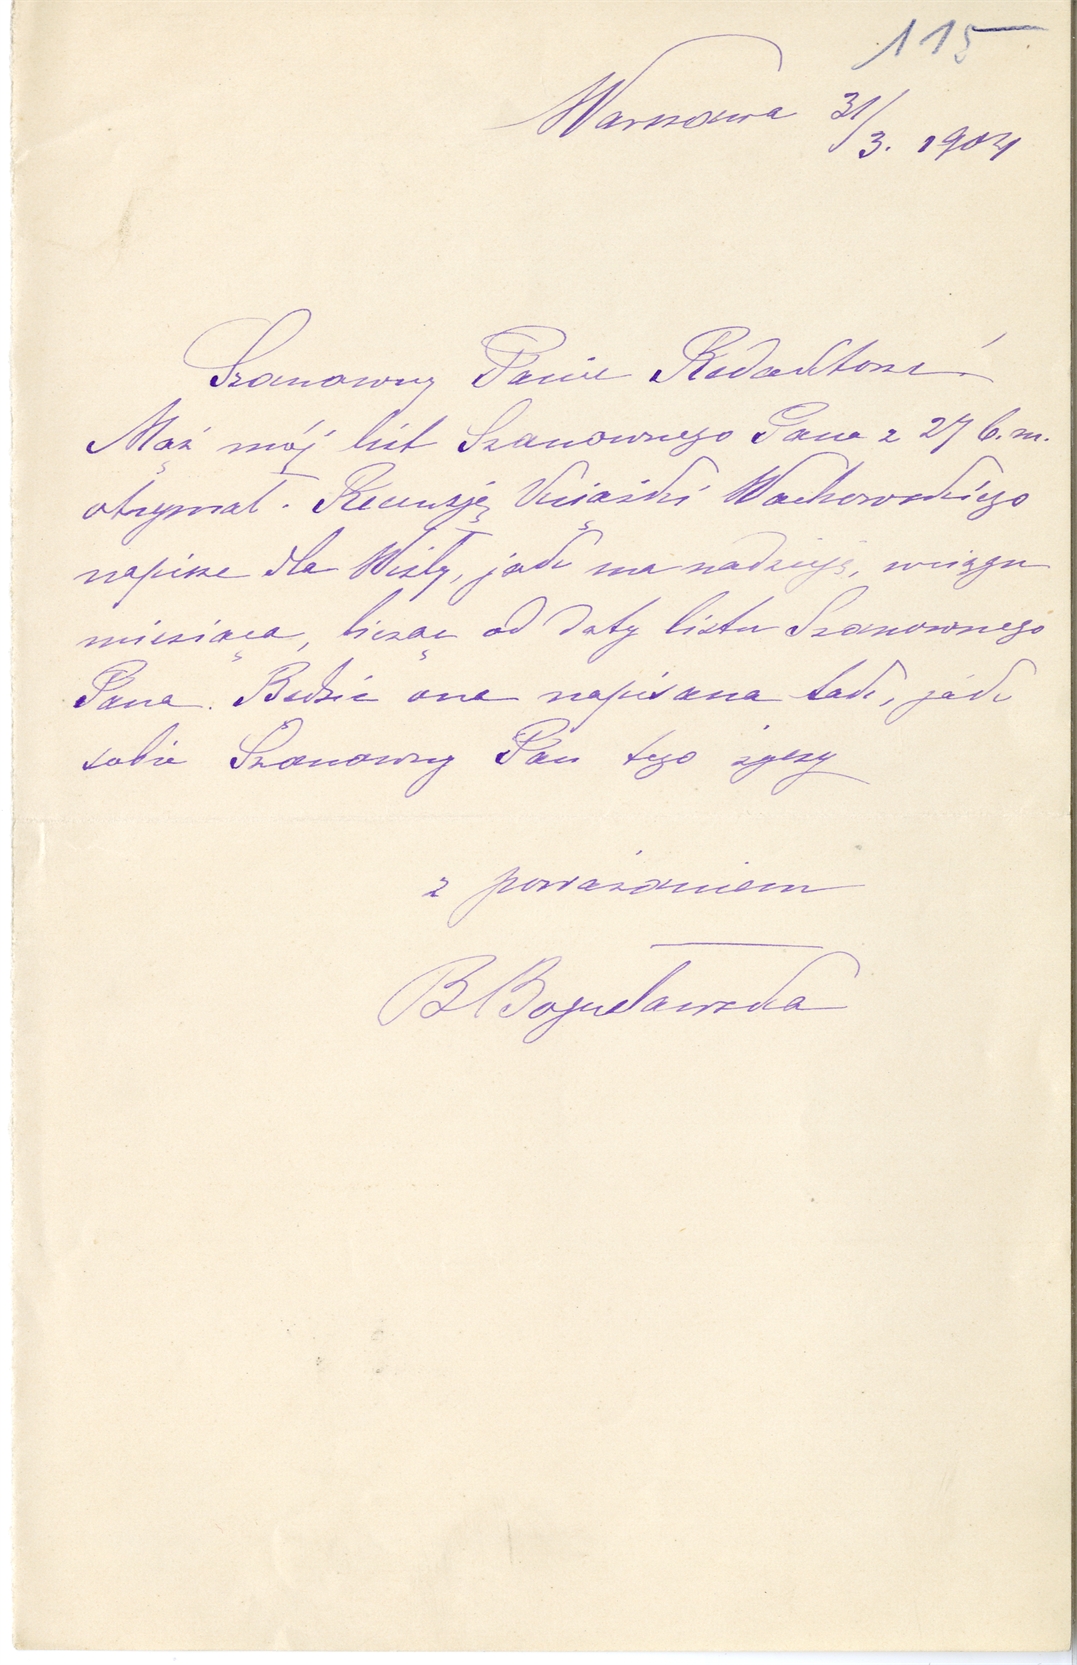 115
Warszawa 31/3. 1904
Szanowny Panie Redaktorze!
Mąż mój list Szanownego Pana z 27 b.m.
otrzymał. Recenzję książki Wachowskiego
napisze dla Wisły, jak ma nadzieję, w ciągu
miesiąca, licząc od daty listu Szanownego
Pana. Będzie ona napisana tak, jak
sobie Szanowny Pan tego życzy
z poważaniem
B Bogusławska